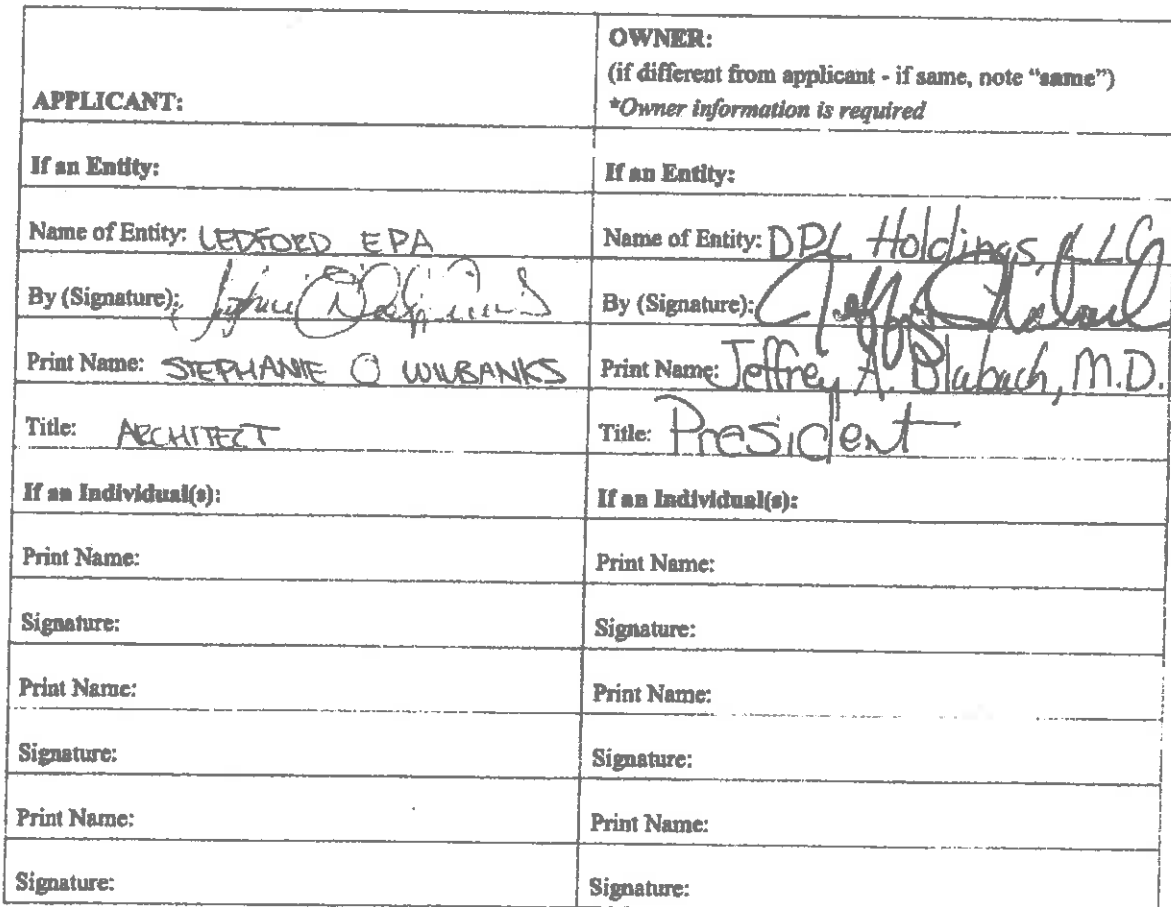 APPLICANT:
OWNER:
(if different from applicant - if same, note “same”)
*Owner information is required
If an Entity:
If an Entity:
Name of Entity: LEDFORD EPA
Name of Entity: DPL Holdings, LLC
By (Signature):
By (Signature):
Print Name: STEPHANIE O WILBANKS
Print Name: Jeffrey A. Blabach, M.D.
Title: ARCHITECT
Title: President
If an Individual(s):
If an Individual(s):
Print Name:
Print Name:
Signature:
Signature:
Print Name:
Print Name:
Signature:
Signature:
Print Name:
Print Name:
Signature:
Signature: